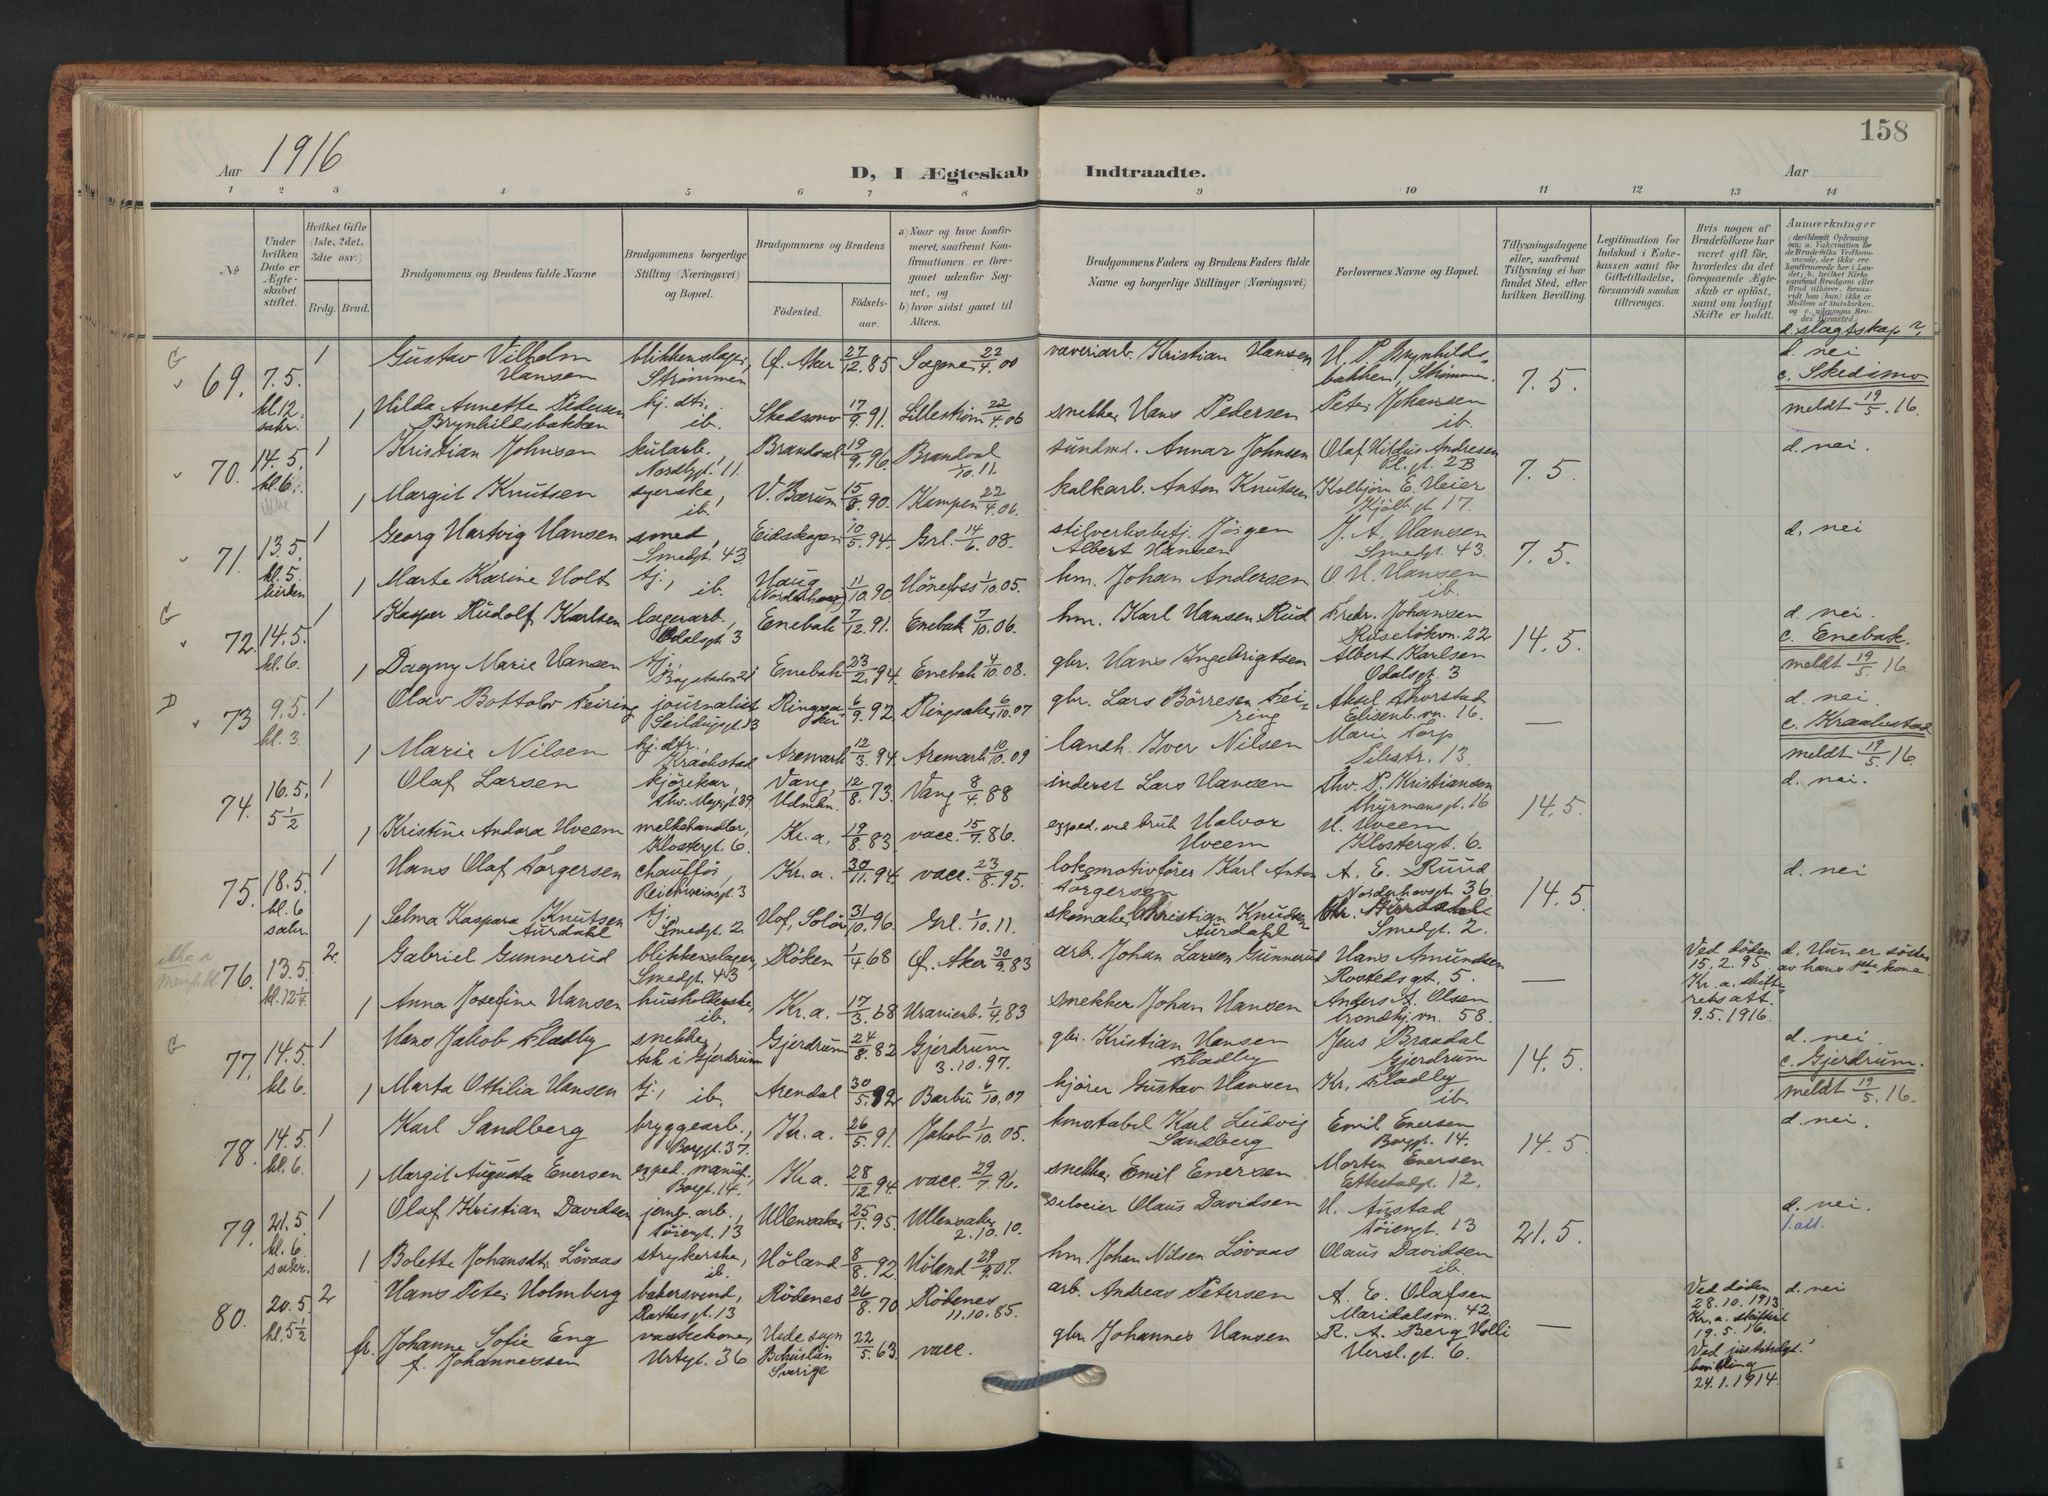 158
Aar 1916
D, I Ægteskab Indtraadte.
Aar
1 2 3 4 5 6 7 8 9 10 11 12 13 14
No
Under hvilken Dato er Ægteskabet stiftet.
Hvilket Gifte (1ste, 2det, 3die osv.)
Brdg. Brud.
Brudgommens og Brudens fulde Navne
Brudgommens borgerlige Stilling (Næringsvei) og Bopæl.
Brudgommens og Brudens
Fødested.
Fødselsaar.
a) Naar og hvor konfirmeret, saafremt Konfirmationen er foregaaet udenfor Sognet, og
b) hvor sidst gaaet til Alters.
Brudgommens Faders og Brudens Faders fulde Navne og borgerlige Stillinger (Næringsvei)
Forlovernes Navne og Bopæl.
Tillysningsdagene eller, saafremt Tillysning ei har fundet Sted, efter hvilken Bevilling.
Legitimation for Indskud i Enkekassen samt for Giftetilladelse, forsaavidt saadan tiltrænges.
Hvis nogen af Brudefolkene har været gift før, hvorledes da det foregaaende Ægteskab er opløst, samt om lovligt Skifte er holdt.
Anmærkninger
d. slagtskap?
G
69. 7.5. kl. 12. sakr. 1 Gustav Vilhelm Hansen blikkenslager, Strømmen Ø. Aker 27/12 85 Sagene 22/4 00 Kristian Hansen 7.5. d. nei c. Skedsmo
1 Hilda Annette Pedersen Brynhildsbakken hj. dtr. ib. Skedsmo 17/9 91. Lillestrøm 22/4 06 snekker Hans Pedersen Peter Johansen ib. meldt 19/5. 16.
70. 14.5. kl. 6. 1 Kristian Johnsen Nordbygt. 11. Brandval 19/9 96 Brandval 1/10. 11. Annar Johnsen Olaf Andresen Pl. gt. 2B 7.5. d. nei.
1 Margit Knutsen syerske, ib. V. Bærum 15/8. 90. Kampen 22/4. 06. kalkarb. Anton Knutsen Kolbjørn E. Heier 17.
71. 13.5. kl. 5. kirken 1 Georg Hartvig Hansen smed, Smedgt. 43 Eidskogen 10/5. 94. Grl. 14/6. 08. Jørgen Albert Hansen J. A. Hansen Smedgt. 43. 7.5. d. nei
1 Marte Karine Holt tj., ib. Haug (Norderhov) 11/10. 90. Hønefoss 1/10. 05. hm. Johan Andersen O. H. Hansen ib.
G
72. 14.5. kl. 6. 1 Kasper Rudolf Karlsen lagerarb., Odalsgt. 3 Enebak 7/12. 91. Enebak 7/10. 06. hm. Karl Hansen Rud Fredr. Johansen Ruseløkvn. 22 14.5. d. nei. c. Enebak.
1 Dagny Marie Hansen tj. Enebak 23/2. 94. Enebak 4/10. 08. gbr. Hans Ingebrigtsen Albert Karlsen Odalsgt. 3 meldt 19/5. 16
D
73 9.5. kl. 3. 1 Olav Bottolv Feiring journalist Seildugsgt. 13 Ringsaker 6/9. 92 Ringsaker 6/10. 07 gbr. Lars Börresen Feiring Aksel Thorstad Eilisenb. vn. 16. — d. nei c. Kraakstad
1 Marie Nilsen hj. dtr., Kraakstad Aremark 12/3. 94. Aremark 10/10. 09 landh. Iver Nilsen Marie Torp 13. meldt 19/5. 16.
74. 16.5. 5 1/2 1 Olaf Larsen kjørekar, Thv. Meyergt. 39 Vang, Hdmkn. 12/8. 73. Vang 8/4. 88 inderst Lars Hansen Thv. P. Kristiansen 16 14.5. d. nei.
1 Kristine Andora Hveem melkehandler, Klostergt. 6. Kr.a. 19/8. 83. vacc. 15/7. 86. Halvor Hveem H. Hveem Klostergt. 6.
75. 18.5. kl. 6 sakr. 1 Hans Olaf Torgersen chauffør, Reichweinsgt. 3 Kr.a. 30/11. 94. vacc. 23/8. 95. lokomotivfører Karl Anton Torgersen A. E. Ruud Norderhovsgt. 36 14.5. d. nei
1 Selma Kaspara Knutsen Aurdahl tj. Smedgt. 2. Hof, Solør 31/10. 96. Grl. 1/10. 11. skomaker Christian Knudsen Aurdahl Smedgt. 2.
76. 13.5. kl. 12 1/4. 2. Gabriel Gunnerud blikkenslager, Smedgt. 43 Røken 1/4. 68 Ø. Aker 30/9. 83 arb. Johan Larsen Gunnerud Hans Amundsen Rostedsgt. 5. — Ved døden 15.2.95. Kr.a. skifteretsatt. 9.5.1916. d. Hun er søster av hans 1ste kone.
1 Anna Josefine Hansen husholderske, ib. Kr.a. 17/3. 68 Uranienb. 1/4. 83 snekker Johan Hansen Anders A. Olsen Trondhj.vn. 58.
G
77. 14.5. kl. 6. 1 Hans Jakob Fladby snekker, Ask i Gjerdrum Gjerdrum 24/8. 82 Gjerdrum 3.10.97. gbr. Kristian Hansen Fladby Jens Brandal Gjerdrum 14.5. d. nei. c. Gjerdrum.
1 Marta Othilia Hansen tj., ib. Arendal 30/5. 92 Barbu 6/10. 07 kjører Gustav Hansen Kr. Fladby ib. meldt 19/5. 16.
78. 14.5. kl. 6. 1 Karl Sandberg bryggearb., Borggt. 37. Kr.a. 26/5. 91. Jakob 1/10. 05. konstabel Karl Ludvig Sandberg Emil Enersen Borggt. 14. 14.5. d. nei.
1 Margit Augusta Enersen exped. manuf. Borgt. 14. Kr.a. 28/12. 94. vacc. 29/7. 96. snekker Emil Enersen Morten Enersen 12.
79. 21.5. kl. 6. sakr. 1 Olaf Kristian Davidsen jernb. arb., Tøiengt. 13 Ullensaker 25/1. 95. Ullensaker 2.10.10. selveier Olaus Davidsen H. Austad Tøiengt. 13 21.5. d. nei. 1 att.
1 Bolette Johansdtr. Lövaas strykerske, ib. Höland 8/8. 92. Höland 29/9. 07. hm. Johan Nilsen Lövaas Olaus Davidsen ib.
80. 20.5. kl. 5 1/2 2 Hans Peter Holmberg bakersvend, Rathkesgt. 13 Rødenes 26/8. 70 Rødenes 11.10.85. arb. Andreas Petersen A. E. Olafsen Maridalsvn. 42. — Ved døden 28.10.1913 Kr.a. skifteret 19.5.16. d. nei
fr. Johanne Sofie Eng f. Johannessen vaskekone, Urtegt. 36 Hede sogn Bohuslän Sverige 22/5. 63. vacc. gbr. Johannes Hansen R. A. Berg Hersl. gt. 6. Ved justitsdpt. bevilling 24.1.1914.